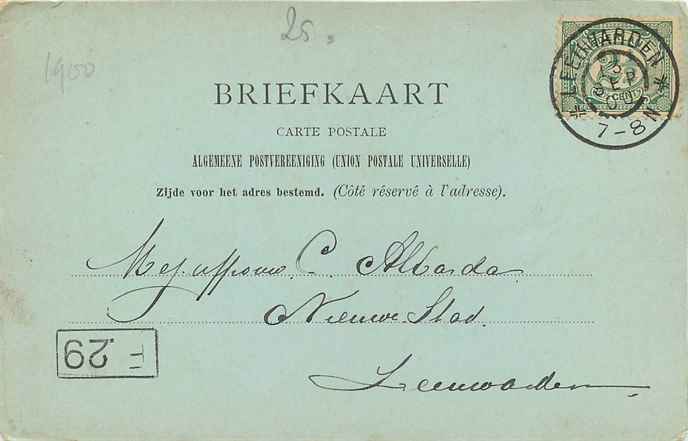 25.
1900
LEEUWARDEN
SEP
00
7-8N
2½
CENT
BRIEFKAART
CARTE POSTALE
ALGEMEENE POSTVEREENIGING (UNION POSTALE UNIVERSELLE)
Zijde voor het adres bestemd. (Côté réservé à l'adresse).
Mejuffrouw C. Albarda
Nieuwe Stad.
Leeuwarden
F 29